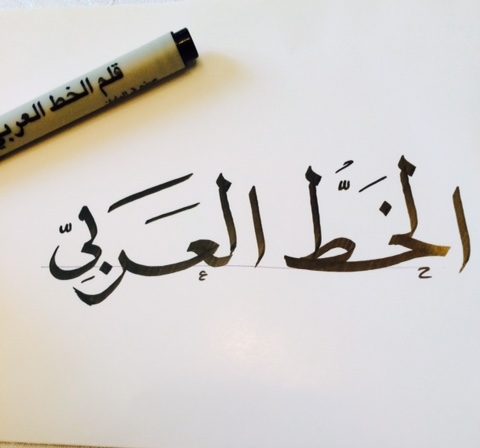 قلم الخط العربي
الخَطُّ العَرَبِيّ